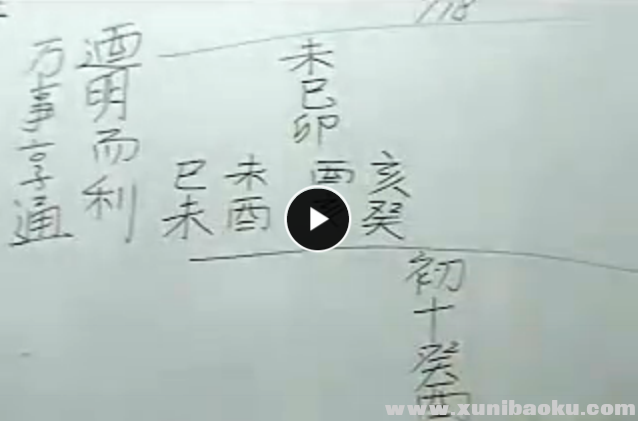 未巳卯
亥癸
酉
未酉
巳未
初十癸酉
明而利
万事亨通
www.xunibaoku.com